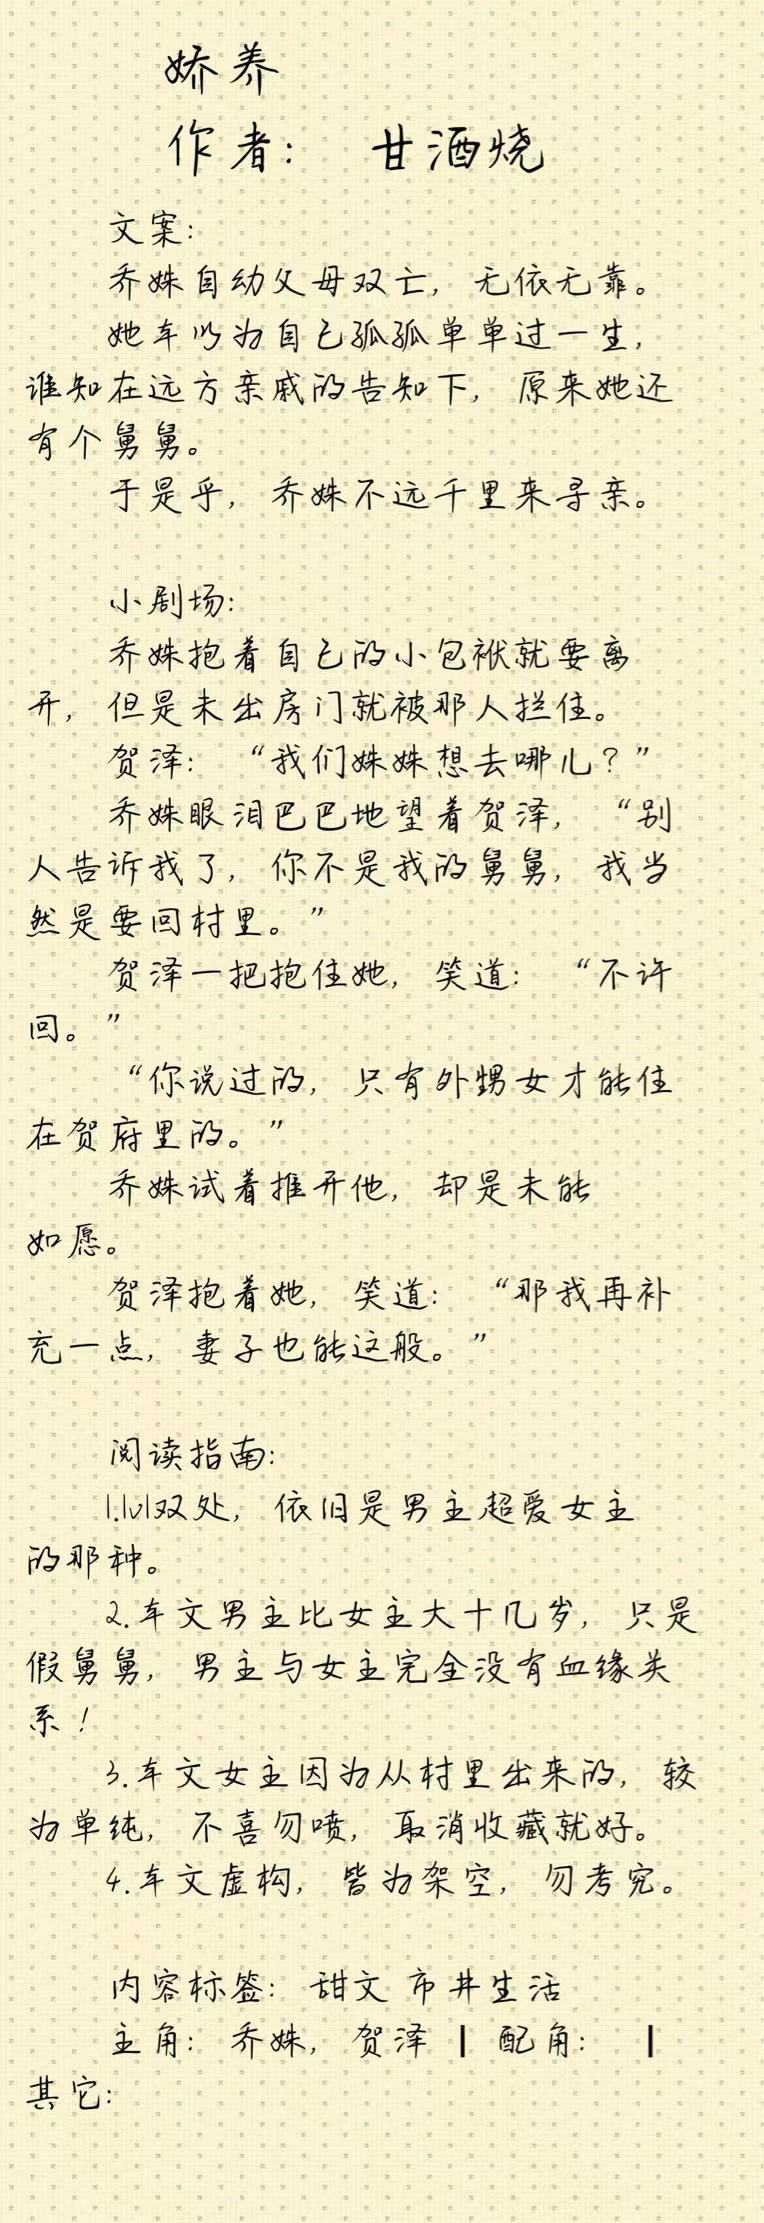 娇养
作者： 甘酒烧
文案：
乔姝自幼父母双亡，无依无靠。
她本以为自己孤孤单单过一生，
谁知在远方亲戚的告知下，原来她还
有个舅舅。
于是乎，乔姝不远千里来寻亲。
小剧场：
乔姝抱着自己的小包袱就要离
开，但是未出房门就被那人拦住。
贺泽：“我们姝姝想去哪儿？”
乔姝眼泪巴巴地望着贺泽，“别
人告诉我了，你不是我的舅舅，我当
然是要回村里。”
贺泽一把抱住她，笑道：“不许
回。”
“你说过的，只有外甥女才能住
在贺府里的。”
乔姝试着推开他，却是未能
如愿。
贺泽抱着她，笑道：“那我再补
充一点，妻子也能这般。”
阅读指南：
1.1v1双处，依旧是男主超爱女主
的那种。
2.本文男主比女主大十几岁，只是
假舅舅，男主与女主完全没有血缘关
系！
3.本文女主因为从村里出来的，较
为单纯，不喜勿喷，取消收藏就好。
4.本文虚构，皆为架空，勿考究。
内容标签：甜文 市井生活
主角：乔姝，贺泽 ┃ 配角： ┃
其它：